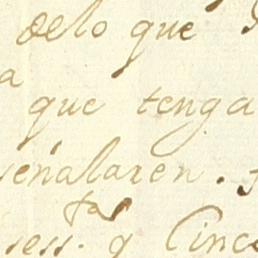 delo que
a
que tenga
señalaren.
tas
sess. q Cinc